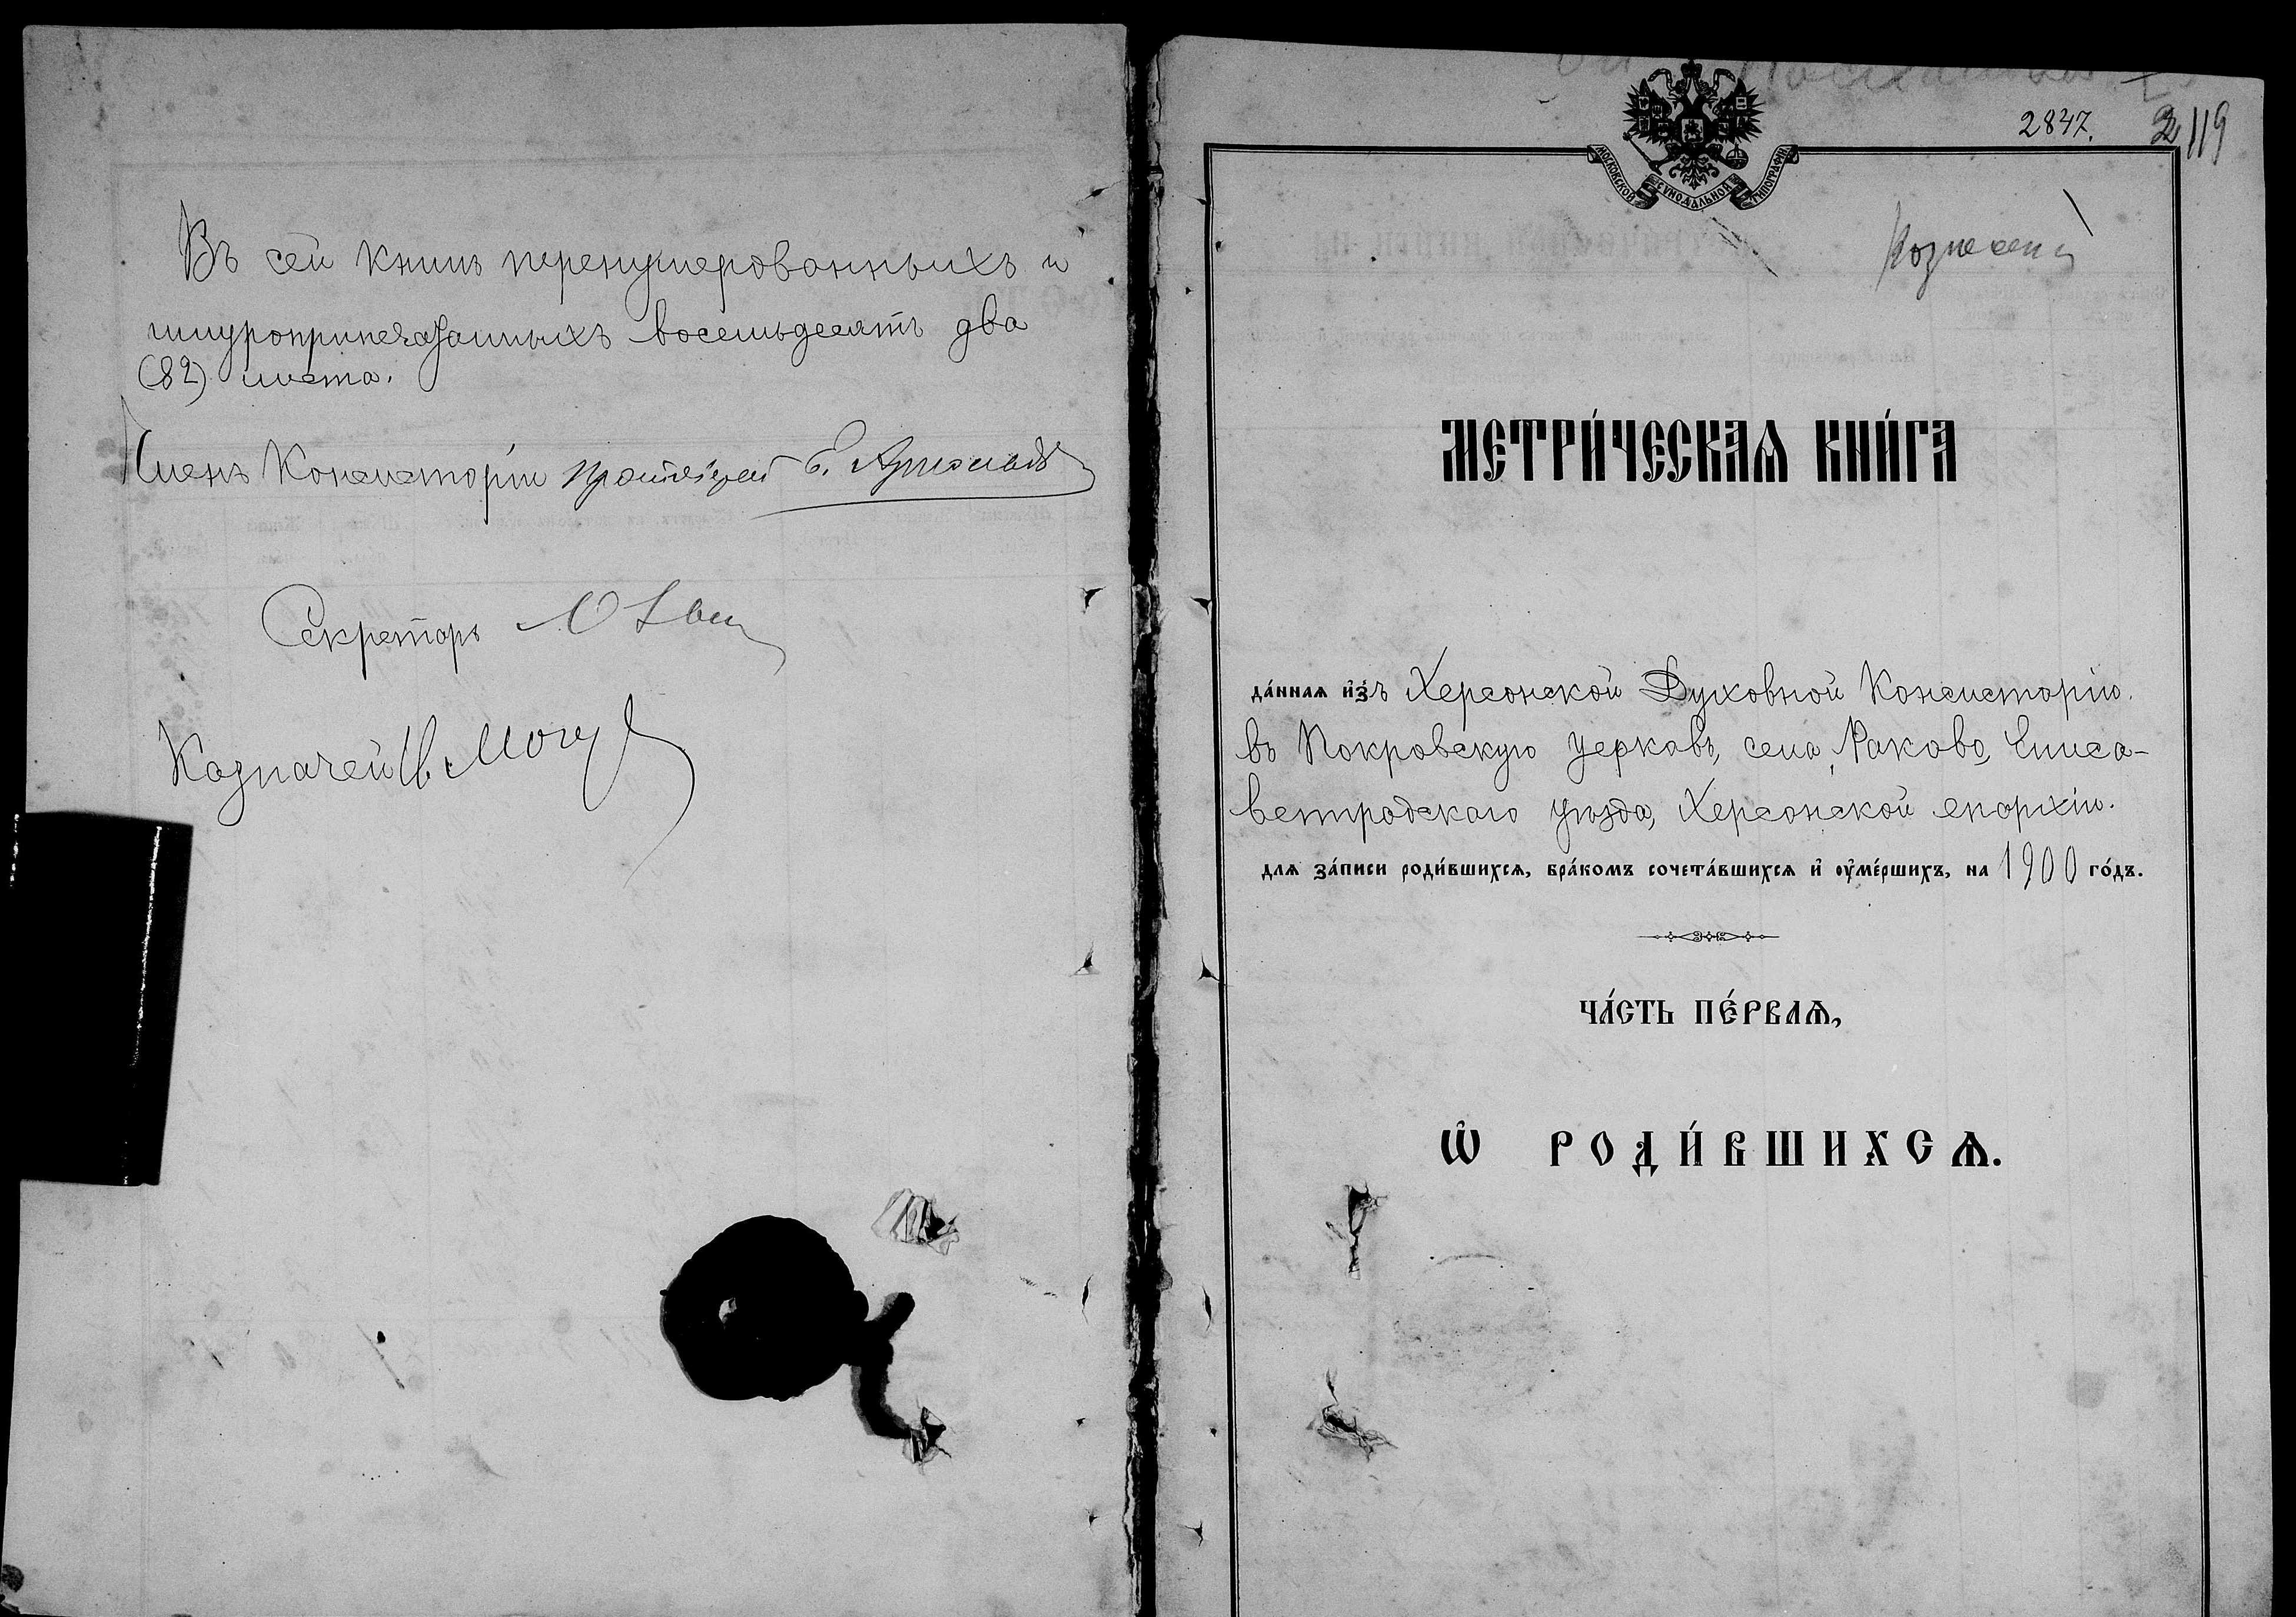 Въ сей книгѣ перенумерованныхъ и
шнуроприпечатанныхъ восемьдесятъ два
(82) листа.
Членъ Консисторіи Протоіерей
Секретарь
Казначей
2847.
119
МОСКОВСКОЙ СѴНОДАЛЬНОЙ ТИПОГРАФІИ
Вознесенск
МЕТРИ́ЧЕСКАѦ КНИ́ГА
да́ннаѧ и҆зъ Херсонской Духовной Консисторіи
въ Покровскую церковь, села Раково, Елиса-
ветградскаго уѣзда, Херсонской епархіи.
длѧ за́писи роди́вшихсѧ, бра́комъ сочета́вшихсѧ и҆ оу҆ме́ршихъ, на 1900 го́дъ.
ЧА́СТЬ ПЕ́РВАѦ,
Ѡ҆ РОДИ́ВШИХСѦ.